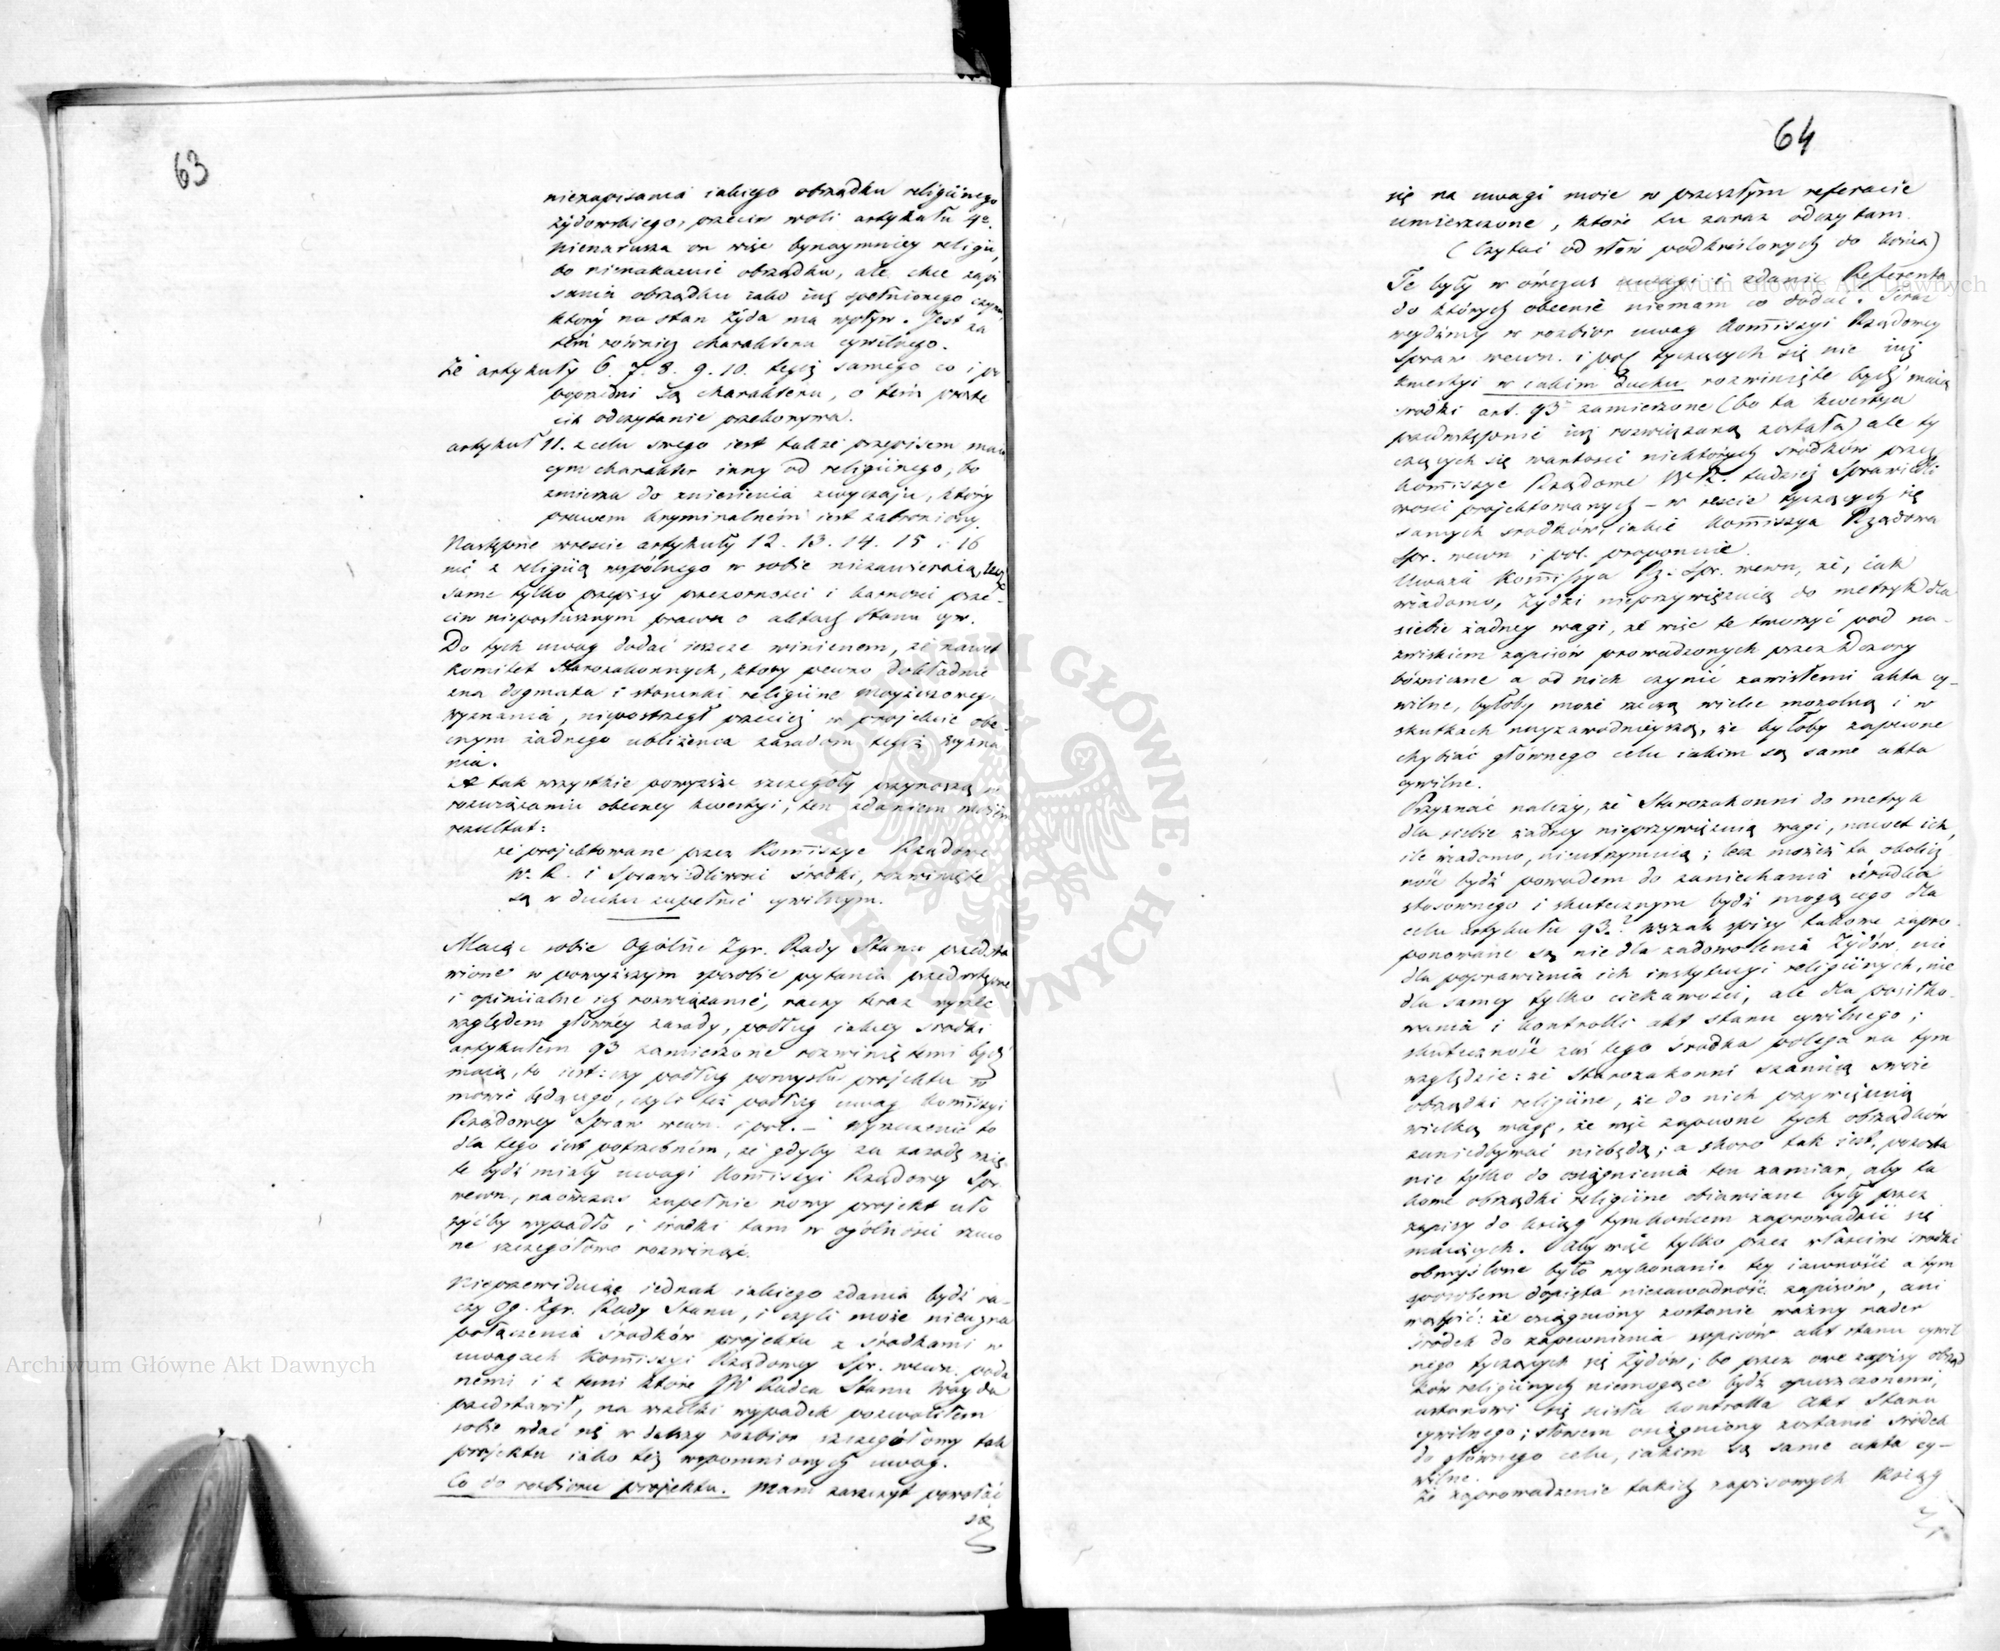 63
niezapisania iakiego obrządku religiinego
żydowskiego, przeciw woli artykułu 4º.
Nienarusza on więc bynaymniey religii,
bo nienakazuie obrządku, ale chce zapi
sania obrządku iako iuż spełnionego czynu,
który na stan Żyda ma wpływ. Jest za
tém również charakteru cywilnego.
Że artykuły 6. 7. 8. 9. 10. tegoż samego co i po
poprzedni są charakteru, o tém proste
ich odczytanie przekonywa.
artykuł 11. z celu swego iest także przepisem maią
cym charakter inny od religiinego, bo
zmierza do zniesienia zwyczaju, który
prawem kryminalném iest zabroniony.
Następne wreszcie artykuły 12. 13. 14. 15 i 16
nic z religią wspólnego w sobie niezawieraią, lecz
same tylko przepisy przezorności i karności prze-
ciw nieposłusznym prawu o aktach Stanu cyw.
Do tych uwag dodać ieszcze winienem, że nawet
Komitet Starozakonnych, który pewno dokładnie
zna dogmata i stosunki religiine Moyżeszowego
wyznania, niepostrzegł przecież w projekcie obe-
cnym żadnego ubliżenia zasadom tegoż wyzna
nia.
A tak wszystkie powyższe szczegóły przynoszą w
rozwiązaniu obecney kwestyi, ten zdaniem moiém
rezultat:
że projektowane przez Kommissye Rządowe
W. R. i Sprawiedliwości środki, rozwinięte
są w duchu zupełnie cywilnym.
Maiąc sobie Ogólne Zgr. Rady Stanu przedsta
wione w powyższym sposobie pytania przedwstępne
i opiniialne ich rozwiązanie, raczy teraz wyrzec
względem główney zasady, podług iakiey środki
artykułem 93 zamierzone rozwiniętemi bydź
maią, to iest: czy podług pomysłu projektu w
mowie będącego, czyli też podług uwag Kommissyi
Rządowey Spraw wewn. i pol. — Wyrzeczenie to
dla tego iest potrzebném, że gdyby za zasadę wzię
te bydź miały uwagi Kommissyi Rządowey Spr.
wewn, naówczas zupełnie nowy projekt uło
żyćby wypadło i środki tam w ogólności rzuco
ne szczegółowo rozwinąć.
Nieprzewiduiąc iednak iakiego zdania bydź ra-
czy Og. Zgr. Rady Stanu, i czyli może nieuzna
połączenia środków projektu z środkami w
uwagach Kommissyi Rządowey Spr. wewn. poda
nemi i z temi które JW Radca Stanu Woyda
przedstawił, na wszelki wypadek pozwoliłem
sobie wdać się w dalszy rozbior szczegółowy tak
projektu iako też wspomnionych uwag.
Co do rozbioru projektu. Mam zaszczyt powołać
się
64
się na uwagi moie w przeszłym referacie
umieszczone, które tu zaraz odczytam.
(Czytać od słów podkreślonych do końca)
Te były w ówczas uwagi i zdanie Referenta
do których obecnie niemam co dodać. Teraz
weydźmy w rozbior uwag Kommissyi Rządowey
Spraw wewn. i pol. tyczących się nie iuż
kwestyi w iakim duchu rozwinięte bydź maią
środki art. 93 zamierzone (bo ta kwestya
przedwstępnie iuż rozwiązaną została) ale ty
czących się wartości niektórych środków przez
Kommissye Rządowe W R. tudzież Sprawiedli
wości projektowanych — w reszcie tyczących się
samych środków, iakie Kommissya Rządowa
Spr. wewn i pol. proponuie.
Uważa Kommissya Rz: Spr. wewn, że, iak
wiadomo, Żydzi nieprzywięzuią do metryk dla
siebie żadney wagi, że więc te tworzyć pod na-
zwiskiem zapisów prowadzonych przez Dozory
bożnicze a od nich czynić zawisłemi akta cy-
wilne, byłoby może rzeczą wielce mozolną i w
skutkach nayzawodnieyszą, że byłoby zapewne
chybiać głównego celu iakim są same akta
cywilne.
Przyznać należy, że Starozakonni do metryk
dla siebie żadney nieprzywięzuią wagi, nawet ich,
ile wiadomo, nieutrzymuią; lecz możeż ta okolicz
ność bydź powodem do zaniechania środka
stosownego i skutecznym bydź mogącego dla
celu artykułu 93.? wszak spisy takowe zapro-
ponowane są nie dla zadowolenia Żydów, nie
dla poprawienia ich instytucyi religiinych, nie
dla samey tylko ciekawości, ale dla posiłko-
wania i kontrolli akt stanu cywilnego;
skuteczność zaś tego środka polega na tym
względzie: że Starozakonni szanuią swoie
obrządki religiine, że do nich przywięzuią
wielką wagę, że więc zapewne tych obrządków
zaniedbywać niebędą; a skoro tak iest, pozosta
nie tylko do osiągnienia ten zamiar, aby ta
kowe obrządki religiine obiawiane były przez
zapisy do ksiąg tymkońcem zaprowadzić się
maiących. Aby więc tylko przez właściwe środki
obmyślone było wykonanie tey iawności a tym
sposobem dopięta niezawodność zapisów, ani
wątpić: że osiągniony zostanie ważny nader
środek do zapewnienia wpisów akt stanu cywil
nego tyczących się Żydów; bo przez owe zapisy obrząd
ków religiinych niemogące bydź opuszczonemi,
ustanowi się ścisła kontrolla Akt Stanu
cywilnego; słowem osiągniony zostanie środek
do głównego celu, iakim są same akta cy-
wilne.
Że zaprowadzenie takich zapisowych Ksiąg
ARCHIWUM GŁÓWNE AKT DAWNYCH
Archiwum Główne Akt Dawnych
Archiwum Główne Akt Dawnych